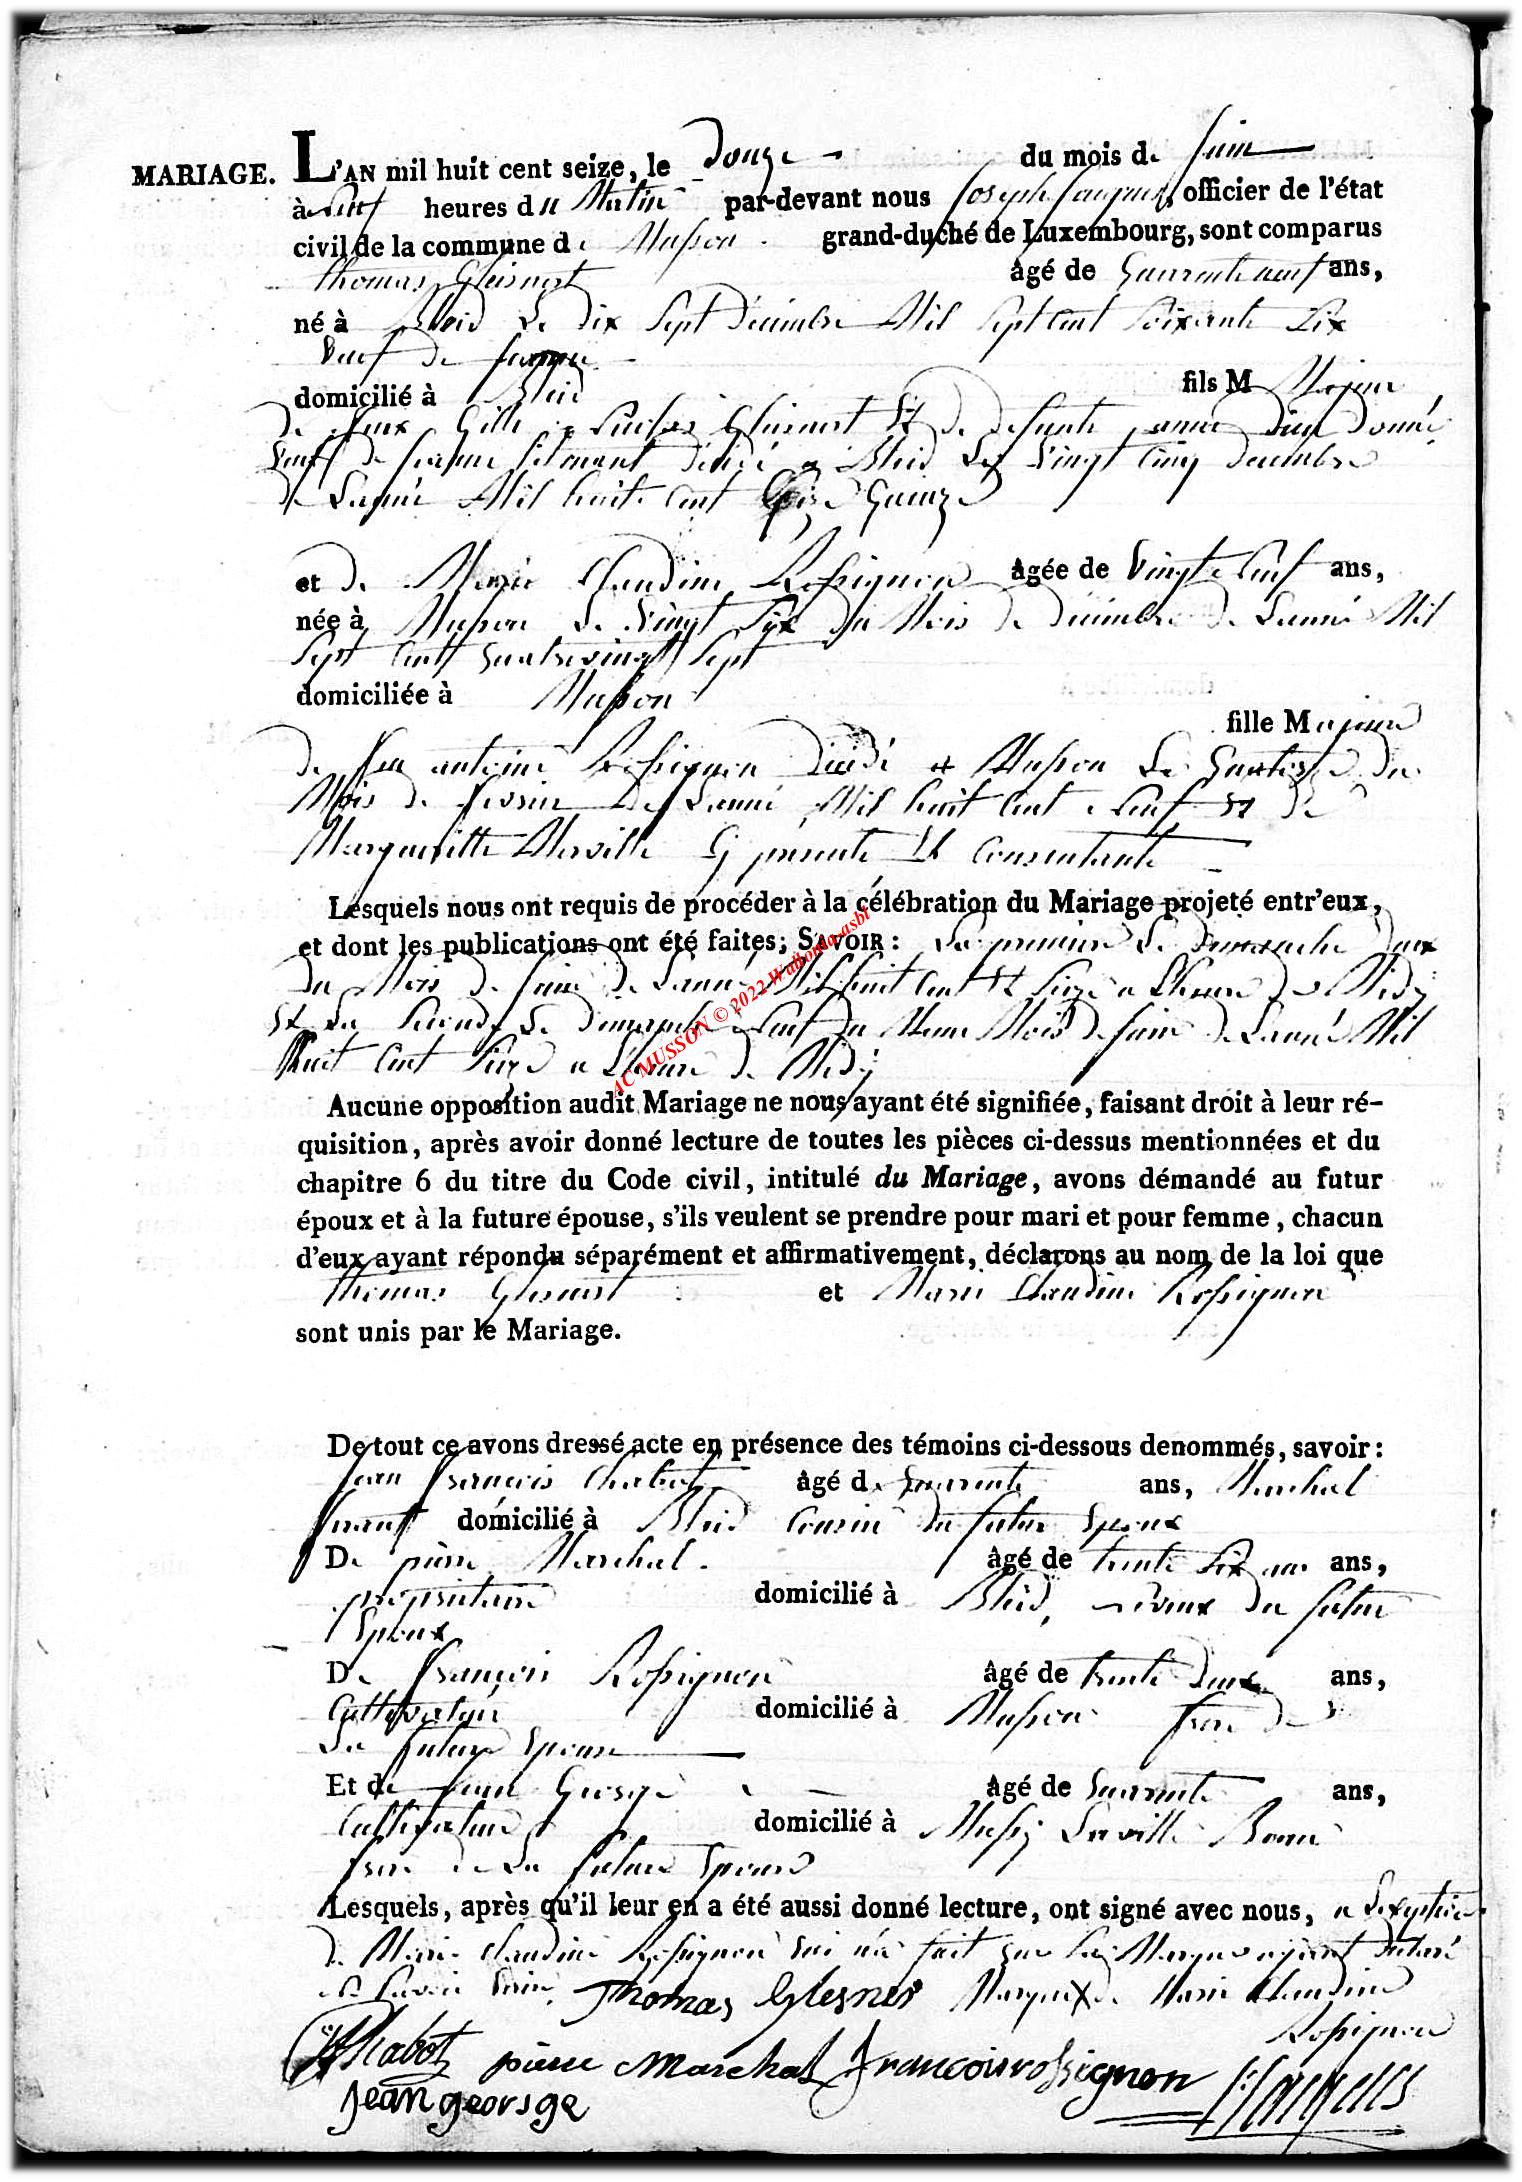 MARIAGE. L'AN mil huit cent seize, le Douze du mois de Juin
à neuf heures du Matin par-devant nous Joseph Jacques, officier de l'état
civil de la commune de Musson grand-duché de Luxembourg, sont comparus
thomas Glesnert âgé de quarente neuf ans,
né à Bleid Le dix Sept décembre Mil Sept Cent Soixante Six
Veuf de
domicilié à Bleid fils Majeur
de feux Gille Glesnert Et de defunte anne dieu donné
Veuf de jeanne décédé a Bleid Le Vingt Cinq decembre
de Lanné Mil huit Cent Quinze
et de Marie Claudine Rossignon âgée de Vingt huit ans,
née à Musson Le Vingt Six du Mois de décembre de Lanné Mil
Sept Cent quatre vingt Sept
domiciliée à Musson
fille Majeure
de feu antoine Rossignon décédé a Musson Le quatorze du
Mois de fevrier de Lanné Mil huit Cent neuf Et de
Margueritte Merville Cy présente Et Consentante
Lesquels nous ont requis de procéder à la célébration du Mariage projeté entr'eux,
et dont les publications ont été faites; SAVOIR: La premiere Le dimanche deux
du Mois de juin de Lanné Mil huit Cent Et Seize a L'heure de Midy
Et La Seconde Le dimanche neuf du Meme Mois de juin de Lanné Mil
huit Cent Seize a L'heure de Midy
AC MUSSON © 2022 Wallonia-asbl
Aucune opposition audit Mariage ne nous ayant été signifiée, faisant droit à leur ré-
quisition, après avoir donné lecture de toutes les pièces ci-dessus mentionnées et du
chapitre 6 du titre du Code civil, intitulé du Mariage, avons démandé au futur
époux et à la future épouse, s'ils veulent se prendre pour mari et pour femme, chacun
d'eux ayant répondu séparément et affirmativement, déclarons au nom de la loi que
thomas Glesnert et Marie Claudine Rossignon
sont unis par le Mariage.
De tout ce avons dressé acte en présence des témoins ci-dessous denommés, savoir:
Jean françois Chabot âgé de quarente ans, Marchal
ferant domicilié à Bleid Cousin du futur Epoux
De pierre Marchal âgé de trente Six ans ans,
propriétaire domicilié à Bleid, neveux du futur
Epoux
De françois Rossignon âgé de trente deux ans,
Cultivateur domicilié à Musson frere de
La future Epouse
Et de jean George âgé de quarente ans,
Cultivateur domicilié à Mussy Laville Beau
frere de La future Epouse
Lesquels, après qu'il leur en a été aussi donné lecture, ont signé avec nous, a Lexception
de Marie Claudine Rossignon qui n'a fait que Sa Marque ayant déclaré
ne Savoir Ecrire. Thomas Glesner Marque X de Marie Claudine
Rossignon
Chabot pierre Marchal francois rossignon
Jean georsge J. Jacques